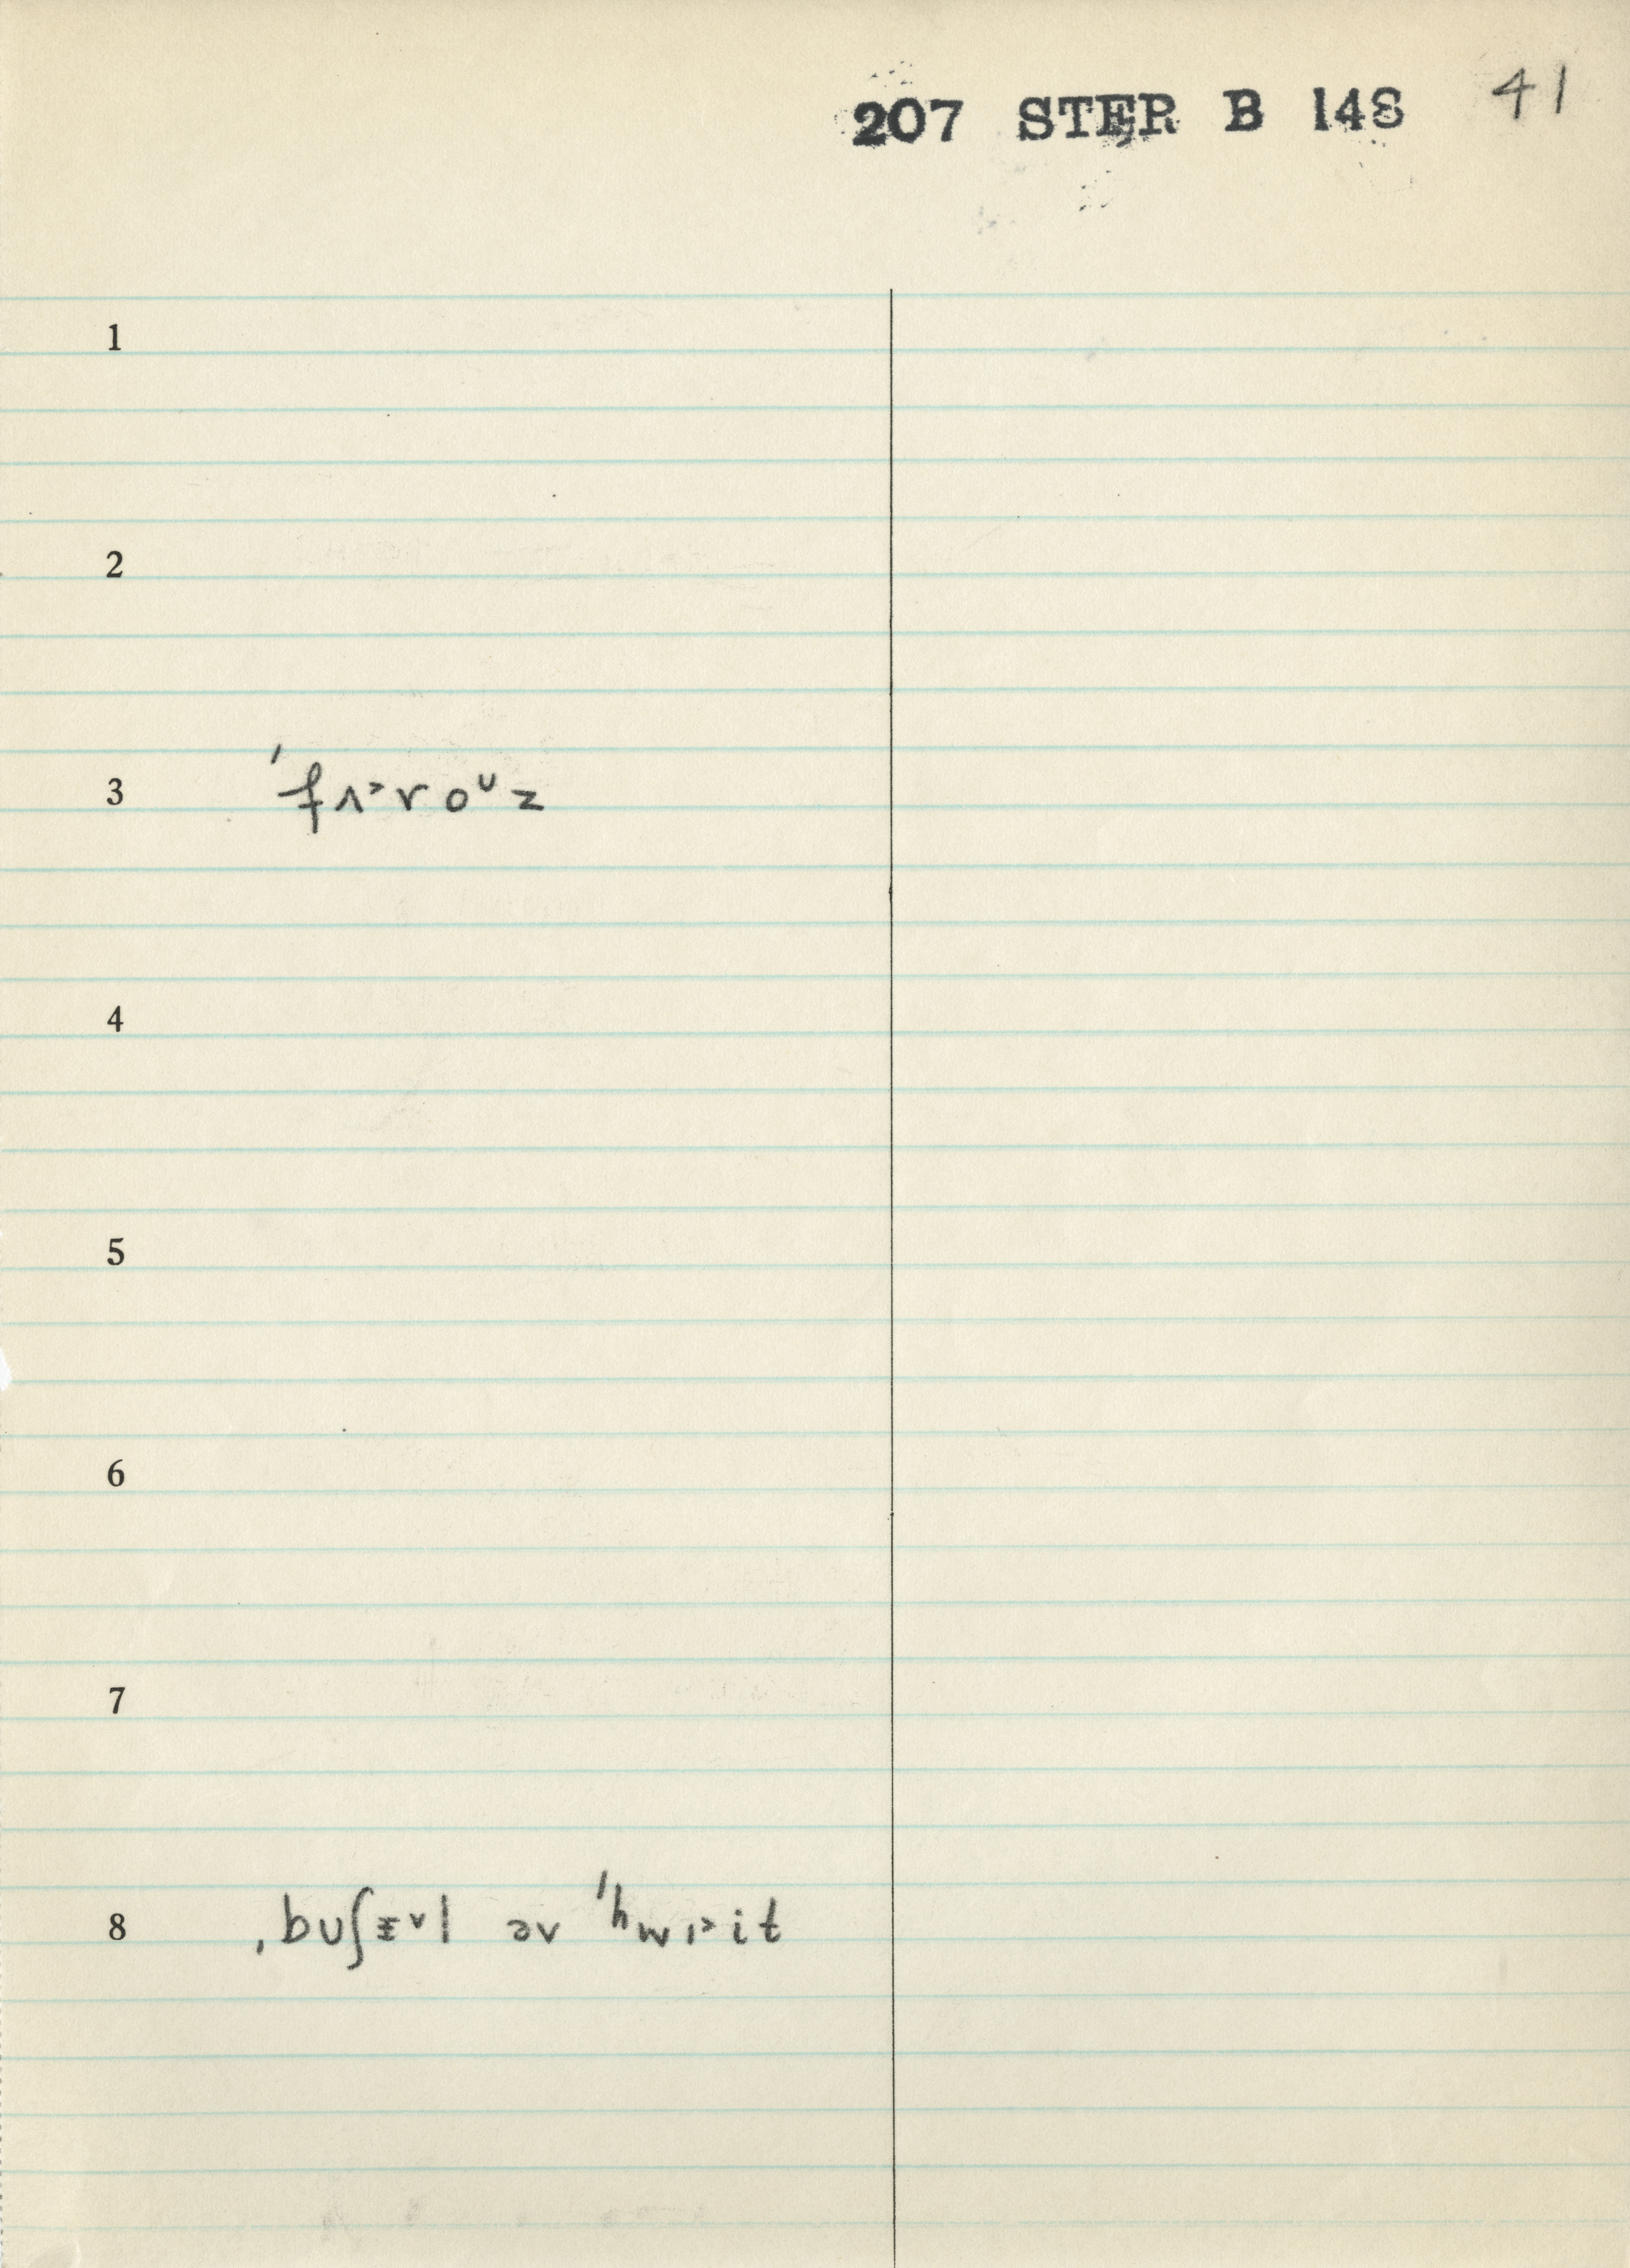 207 STER B 148 41
1
2
3 ˈfʌ˃roᵁz
4
5
6
7
8 ˌbʊʃɪ˅l əv ˈhwɪ˃it